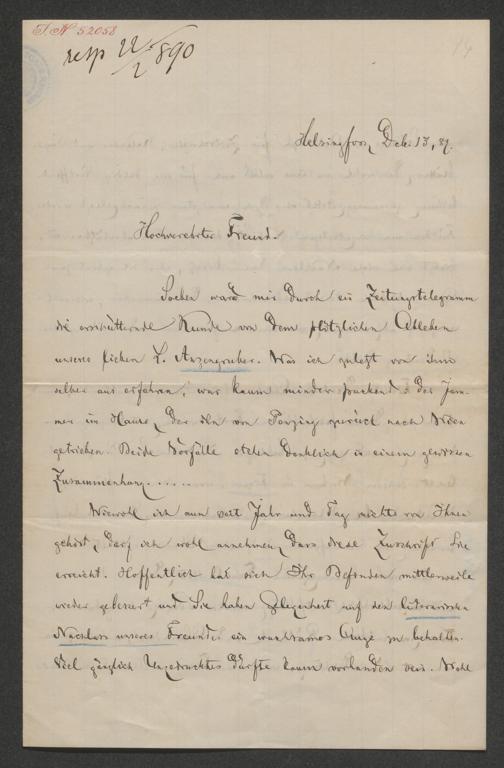 I. N 52058
resp 22/2 890
14
Helsingfors, Dek. 13, 89.
Hochverehrter Freund.
Soeben ward mir durch ein Zeitungstelegramm
die erschütternde Kunde von dem plötzlichen Ableben
unseres lieben L. Anzengruber. Was ich zuletzt von ihm
selber aus erfahren, war kaum minder packend: der Jam-
mer im Hause, der ihn von Penzing zurück nach Wien
getrieben. Beide Vorfälle stehen denklich in einem gewissen
Zusammenhang.....
Wiewohl ich nun seit Jahr und Tag nichts von Ihnen
gehört, darf ich wohl annehmen, dass diese Zuschrift Sie
erreicht. Hoffentlich hat sich Ihr Befinden mittlerweile
wieder gebessert und Sie haben Gelegenheit auf den literarischen
Nachlass unseres Freundes ein wachsames Auge zu behalten.
Viel gänzlich Ungedrucktes dürfte kaum vorhanden sein. Wohl